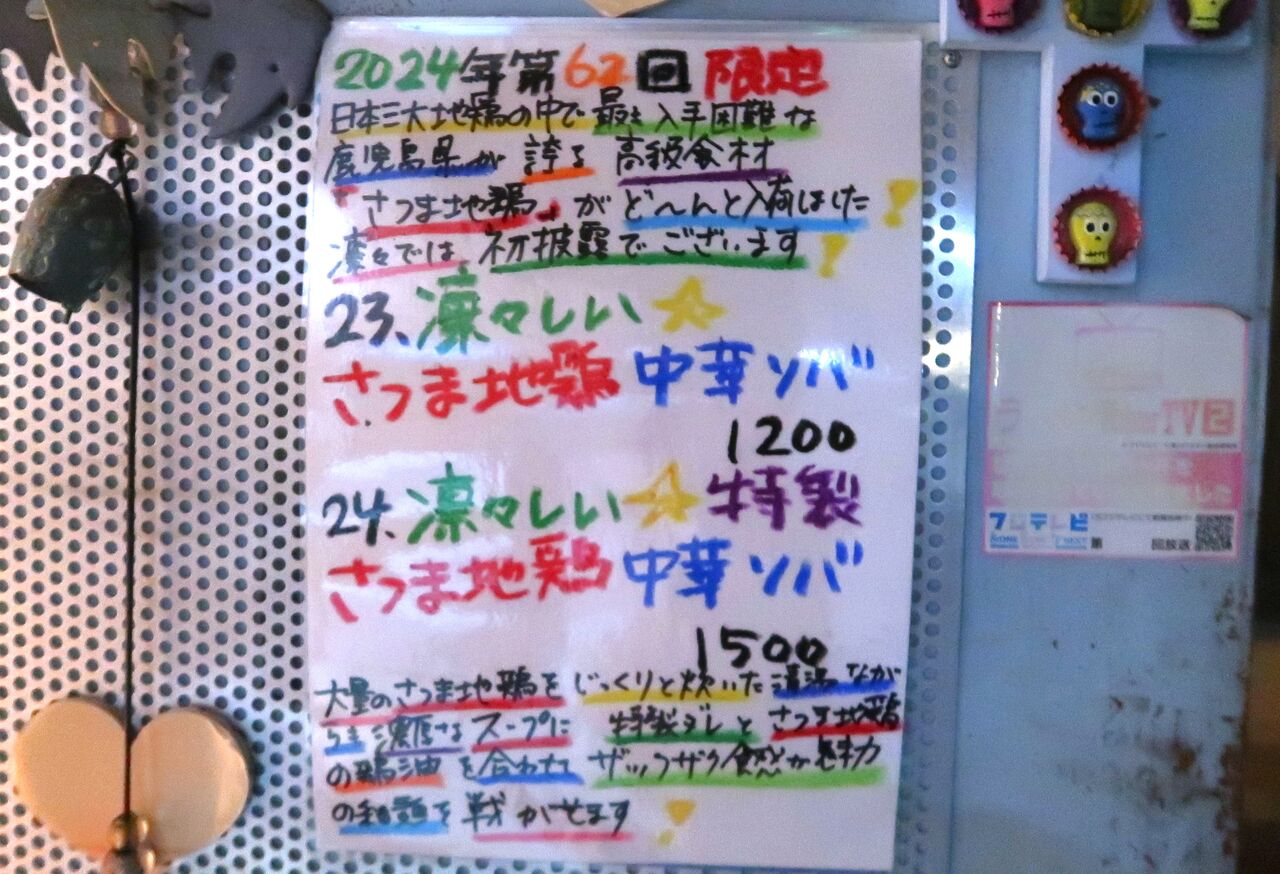 2024年第62回 限定
日本三大地鶏の中で最も入手困難な
鹿児島県が誇る高級食材
「さつま地鶏」がど〜んと入荷しました!
凛々では初披露でございます!
23、凛々しい☆
さつま地鶏中華ソバ
1200
24、凛々しい☆特製
さつま地鶏中華ソバ
1500
大量のさつま地鶏をじっくりと炊いた清湯なが
らも濃厚なスープに 特製ダレとさつま地鶏
の鶏油を合わせて ザックザク食感が魅力
の細麺を戦がせます!
フジテレビ
ONE
NEXT
第 回放送